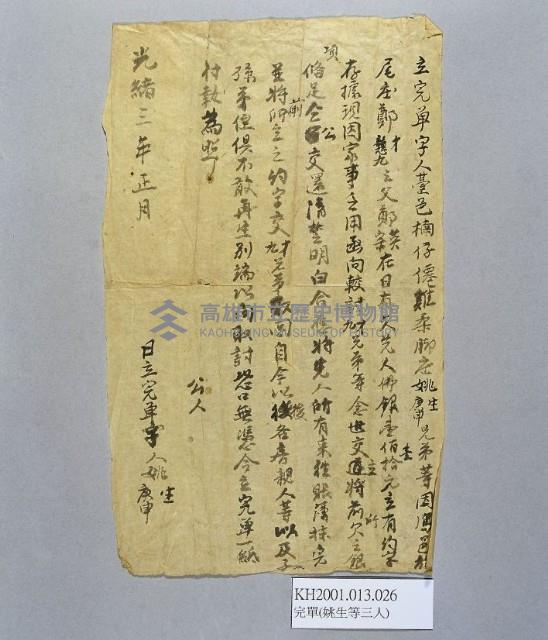 立完單字人臺邑楠仔僊雞柔腳庄姚生庚申兄弟等因鳳邑
尾庄鄭才九之父鄭英在日有欠先人佛銀壹佰拾元立有約字
存據現因家事乏用函向較討九兄弟等念世交立將前欠之銀
項俻足仝公交還清楚明白合應將先人所有來往賬簿抹完
並將前所立之約字交才九兄弟收司自今以後各房親人等以及子
孫弟侄俱不敢再生別端以討恐口無憑今立完單一紙
付執為照
公人
光緒三年正月 日立完單字人姚生庚申
高雄市立歷史博物館
KAOHSIUNG MUSEUM OF HISTORY
KH2001.013.026
完單(姚生等三人)